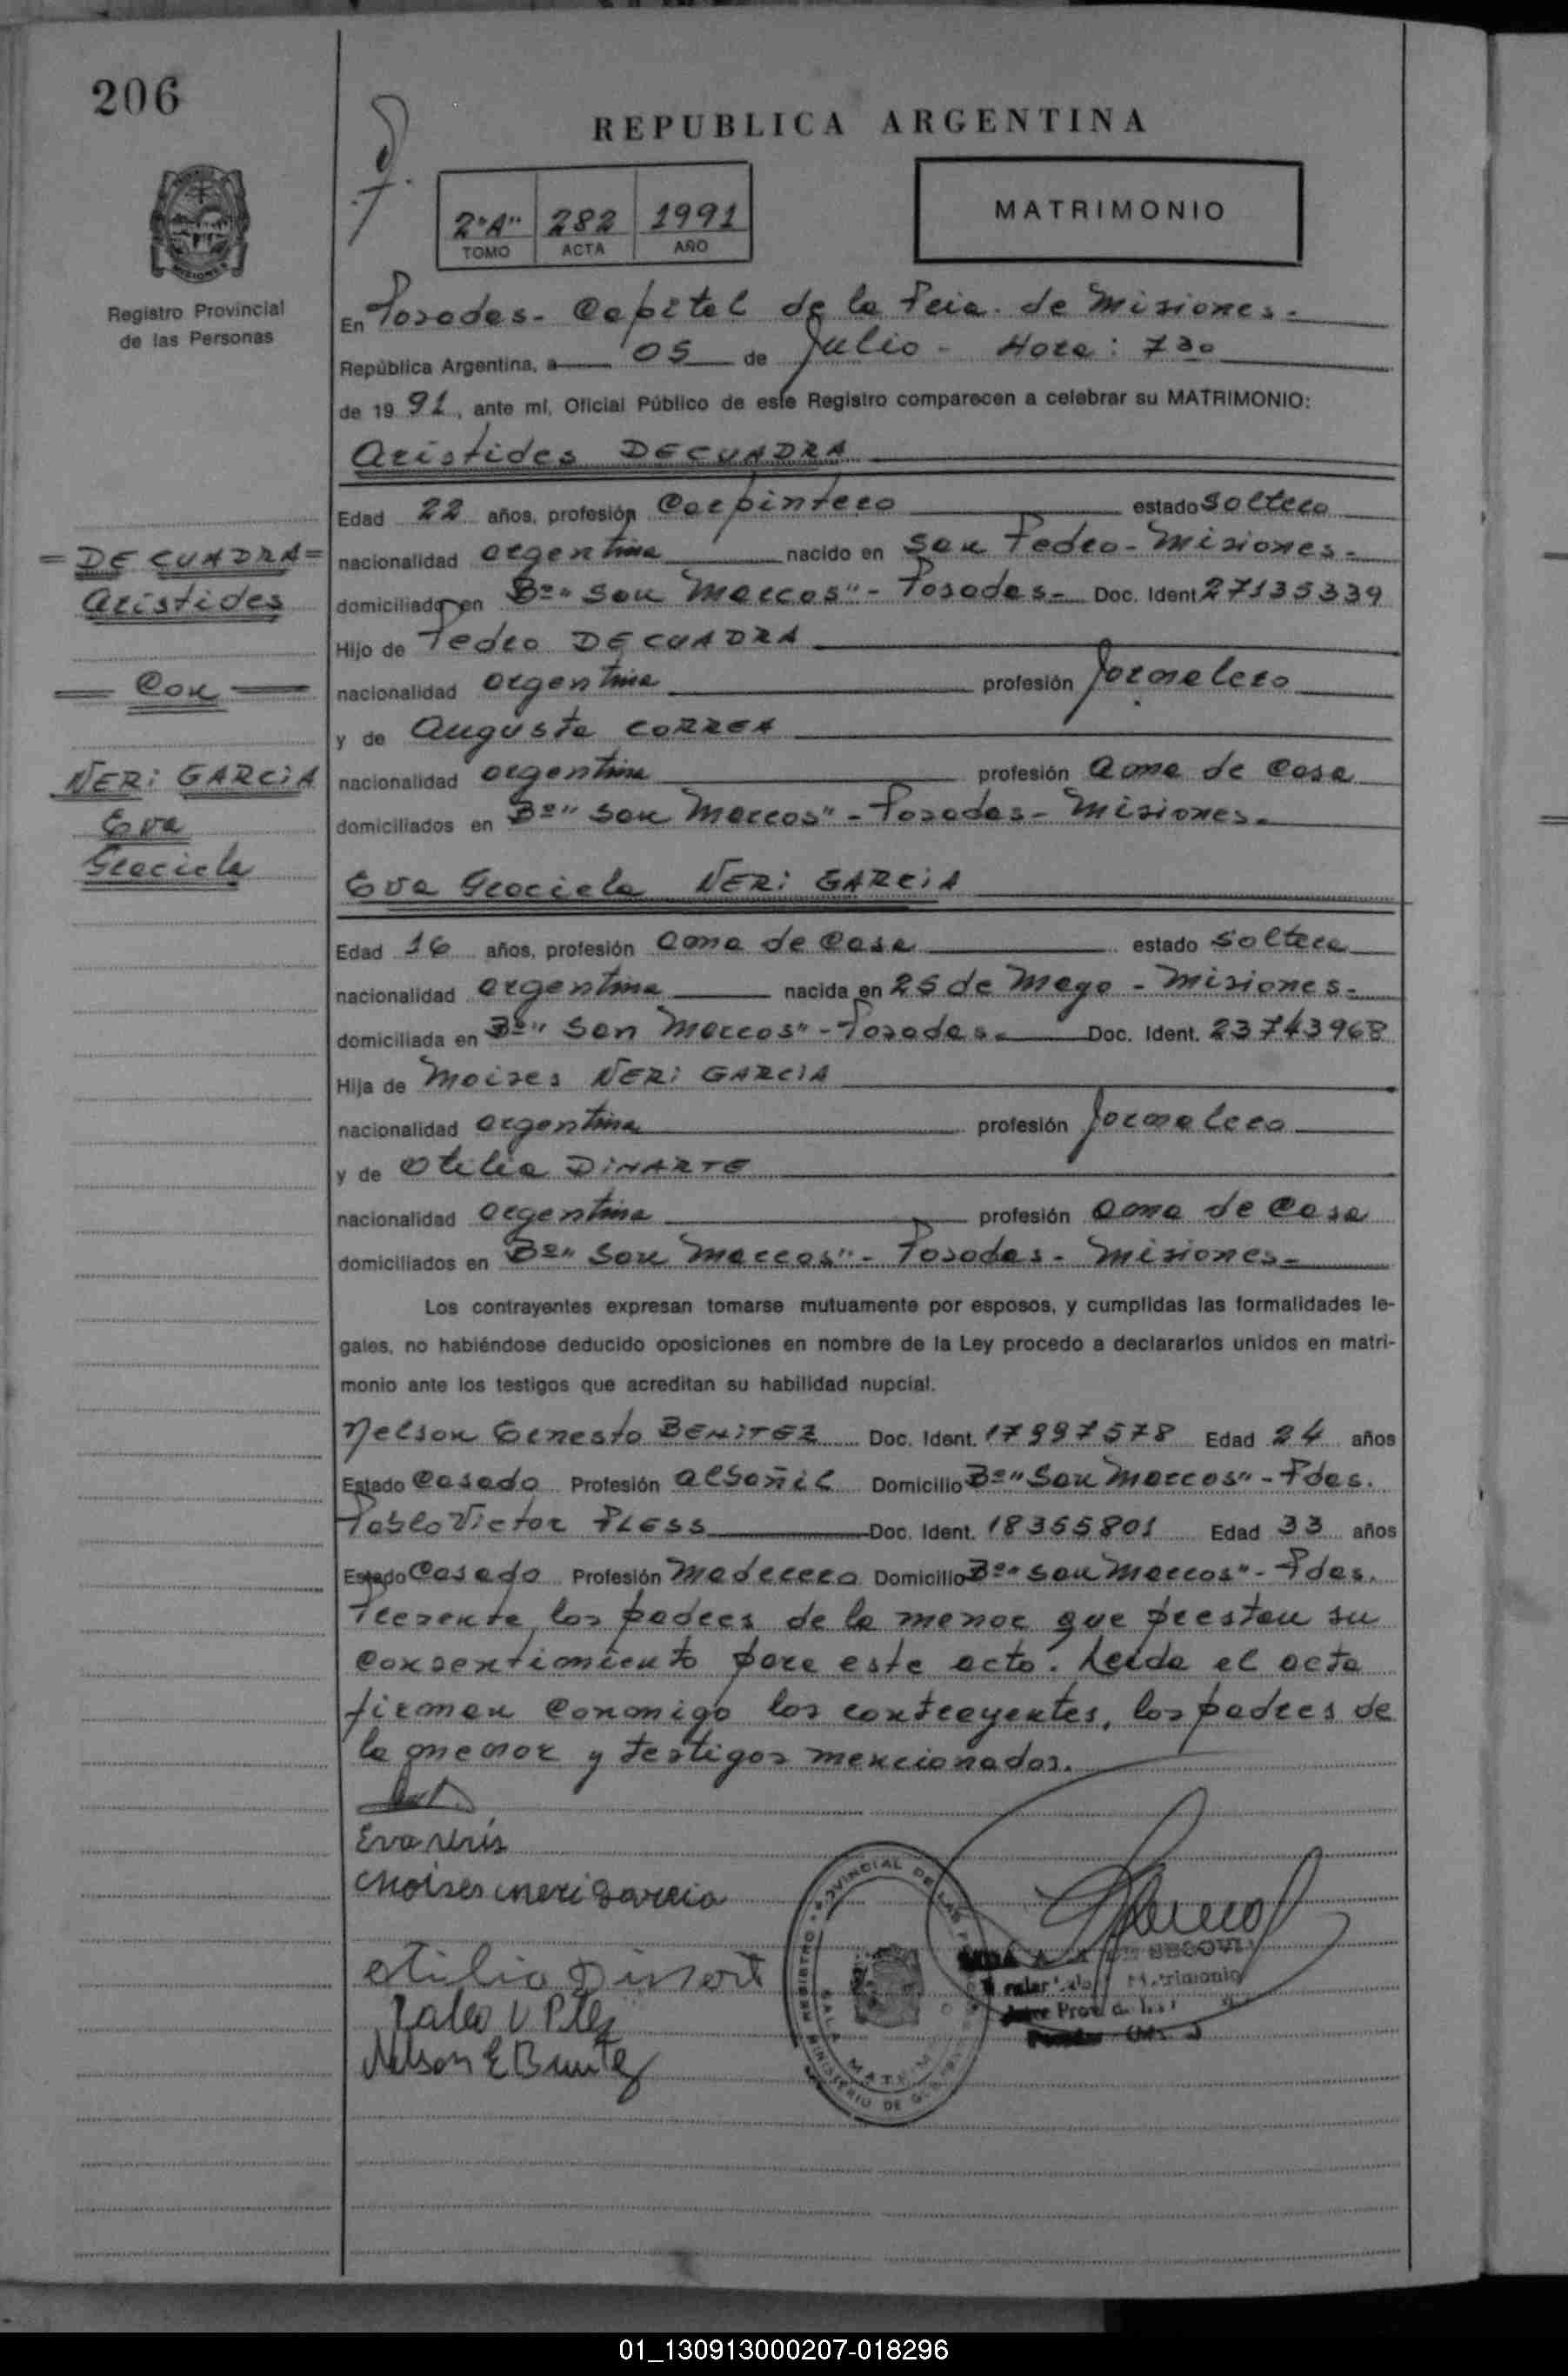 206
REPUBLICA ARGENTINA
Registro Provincial
de las Personas
2"A" 282 1991
TOMO ACTA AÑO
MATRIMONIO
En Posadas - Capital de la Pcia. de Misiones.
República Argentina, a 05 de Julio - Hora: 730
de 19 91, ante mí, Oficial Público de este Registro comparecen a celebrar su MATRIMONIO:
Aristides DECUADRA
Edad 22 años, profesión Carpintero estado Soltero
nacionalidad argentina nacido en San Pedro - Misiones.
domiciliado en Bº "San Marcos" - Posadas - Doc. Ident 27135339
Hijo de Pedro DECUADRA
nacionalidad argentina profesión Jornalero
y de Augusta CORREA
nacionalidad argentina profesión Ama de Casa
domiciliados en Bº "San Marcos" - Posadas - Misiones.
= DECUADRA =
Aristides
= Con =
NERI GARCIA
Eva
Graciela
Eva Graciela NERI GARCIA
Edad 16 años, profesión Ama de Casa estado Soltera
nacionalidad argentina nacida en 25 de Mayo - Misiones.
domiciliada en Bº "San Marcos" - Posadas. Doc. Ident. 23743968
Hija de Moises NERI GARCIA
nacionalidad argentina profesión Jornalero
y de Otilia DINARTE
nacionalidad argentina profesión Ama de Casa
domiciliados en Bº "San Marcos" - Posadas - Misiones.
Los contrayentes expresan tomarse mutuamente por esposos, y cumplidas las formalidades le-
gales, no habiéndose deducido oposiciones en nombre de la Ley procedo a declararlos unidos en matri-
monio ante los testigos que acreditan su habilidad nupcial.
Nelson Ernesto BENITEZ Doc. Ident. 17997578 Edad 24 años
Estado Casado Profesión Albañil Domicilio Bº "San Marcos" - Pdas.
Pablo Victor PLESS Doc. Ident. 18355801 Edad 33 años
Estado Casado Profesión Maderero Domicilio Bº "San Marcos" - Pdas.
Presente los padres de la menor que prestan su
Consentimiento para este acto. Leida el acta
firman Conmigo los contrayentes, los padres de
la menor y testigos mencionados.
Eva Neris
Moises neri Garcia
otilia Dinarte
Pablo V Pless
Nelson E Benitez
REGISTRO PROVINCIAL DE LAS
MINISTERIO DE
SALA
SEGOVIA
Matrimonio
01_130913000207-018296